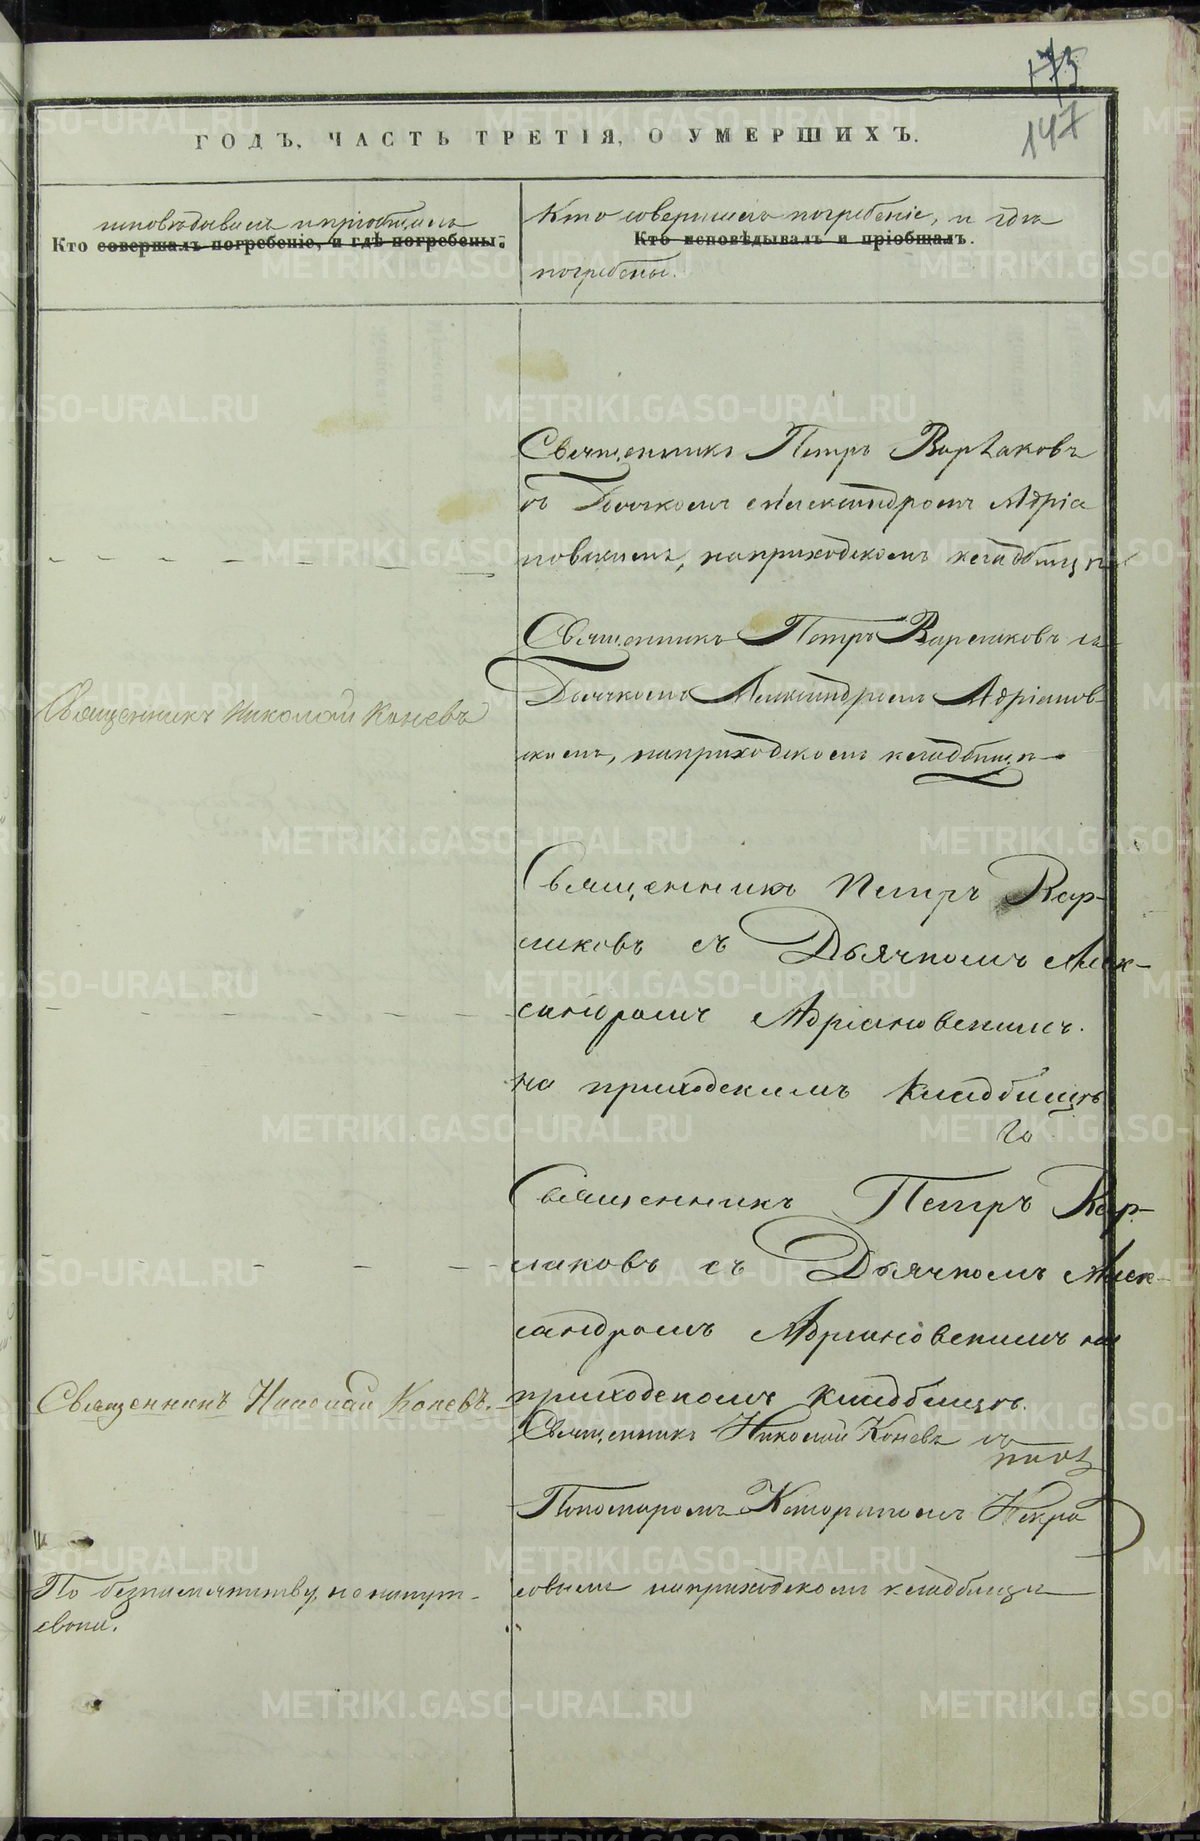 175
147
ГОДЪ, ЧАСТЬ ТРЕТІЯ, О УМЕРШИХЪ.
исповѣдывалъ и пріобщалъ
Кто совершалъ погребеніе, и гдѣ погребены.
Кто совершалъ погребеніе, и гдѣ
Кто исповѣдывалъ и пріобщалъ.
погребены.
Священникъ Петръ
съ Дьячкомъ Александромъ Адріа
новскимъ, на приходскомъ кладбищѣ
Священникъ Петръ съ
Дьячкомъ Александромъ Адріанов-
скимъ, на приходскомъ кладбищѣ
Священникъ Николай Коневъ
Священникъ Петръ Кар-
съ Дьячкомъ Алек-
сандромъ Адріановскимъ
на приходскимъ кладбищѣ
Священникъ Петръ Кар-
съ Дьячкомъ Алек-
сандромъ Адріановскимъ на
приходскомъ кладбищѣ.
Священникъ Николай Коневъ.
Священникъ Николай Коневъ съ
Пономаромъ Некра
совымъ на приходскомъ кладбищѣ
По безпамятству, не напут-
METRIKI.GASO-URAL.RU